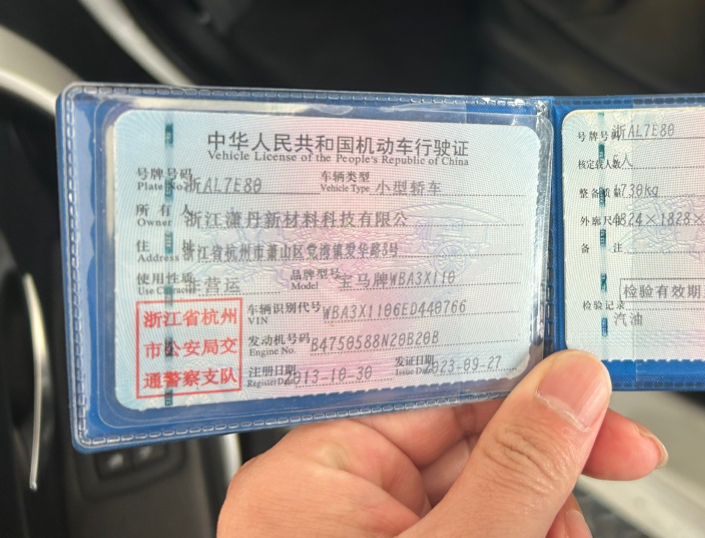 中华人民共和国机动车行驶证
Vehicle License of the People's Republic of China
号牌号码 Plate No. 浙AL7E80 车辆类型 Vehicle Type 小型轿车
所有人 Owner 浙江潇丹新材料科技有限公
住址 Address 浙江省杭州市萧山区党湾镇爱华路8号
使用性质 Use Character 非营运 品牌型号 Model 宝马牌WBA3X110
浙江省杭州
市公安局交
通警察支队
车辆识别代号 VIN WBA3X1106ED440766
发动机号码 Engine No. B4750588N20B20B
注册日期 Register Date 2013-10-30 发证日期 Issue Date 2023-09-27
号牌号码 浙AL7E80
核定载人数 人
整备质量 1730kg
外廓尺寸 4824×1828×
备注
检验有效期
检验记录
汽油